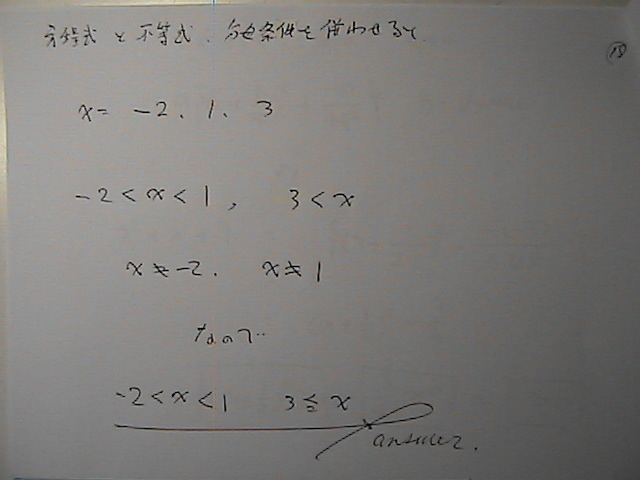 方程式と不等式、分母条件を併わせると
18
x = -2、1、3
-2 < x < 1,  3 < x
x ≠ -2.  x ≠ 1
なので…
-2 < x < 1  3 ≦ x
answer.